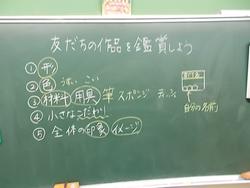 友だちの作品を鑑賞しよう
① 形
② 色 うすい こい
③ 材料 用具 筆 スポンジ
④ 小さなこだわり
⑤ 全体の印象 イメージ
自分の名前